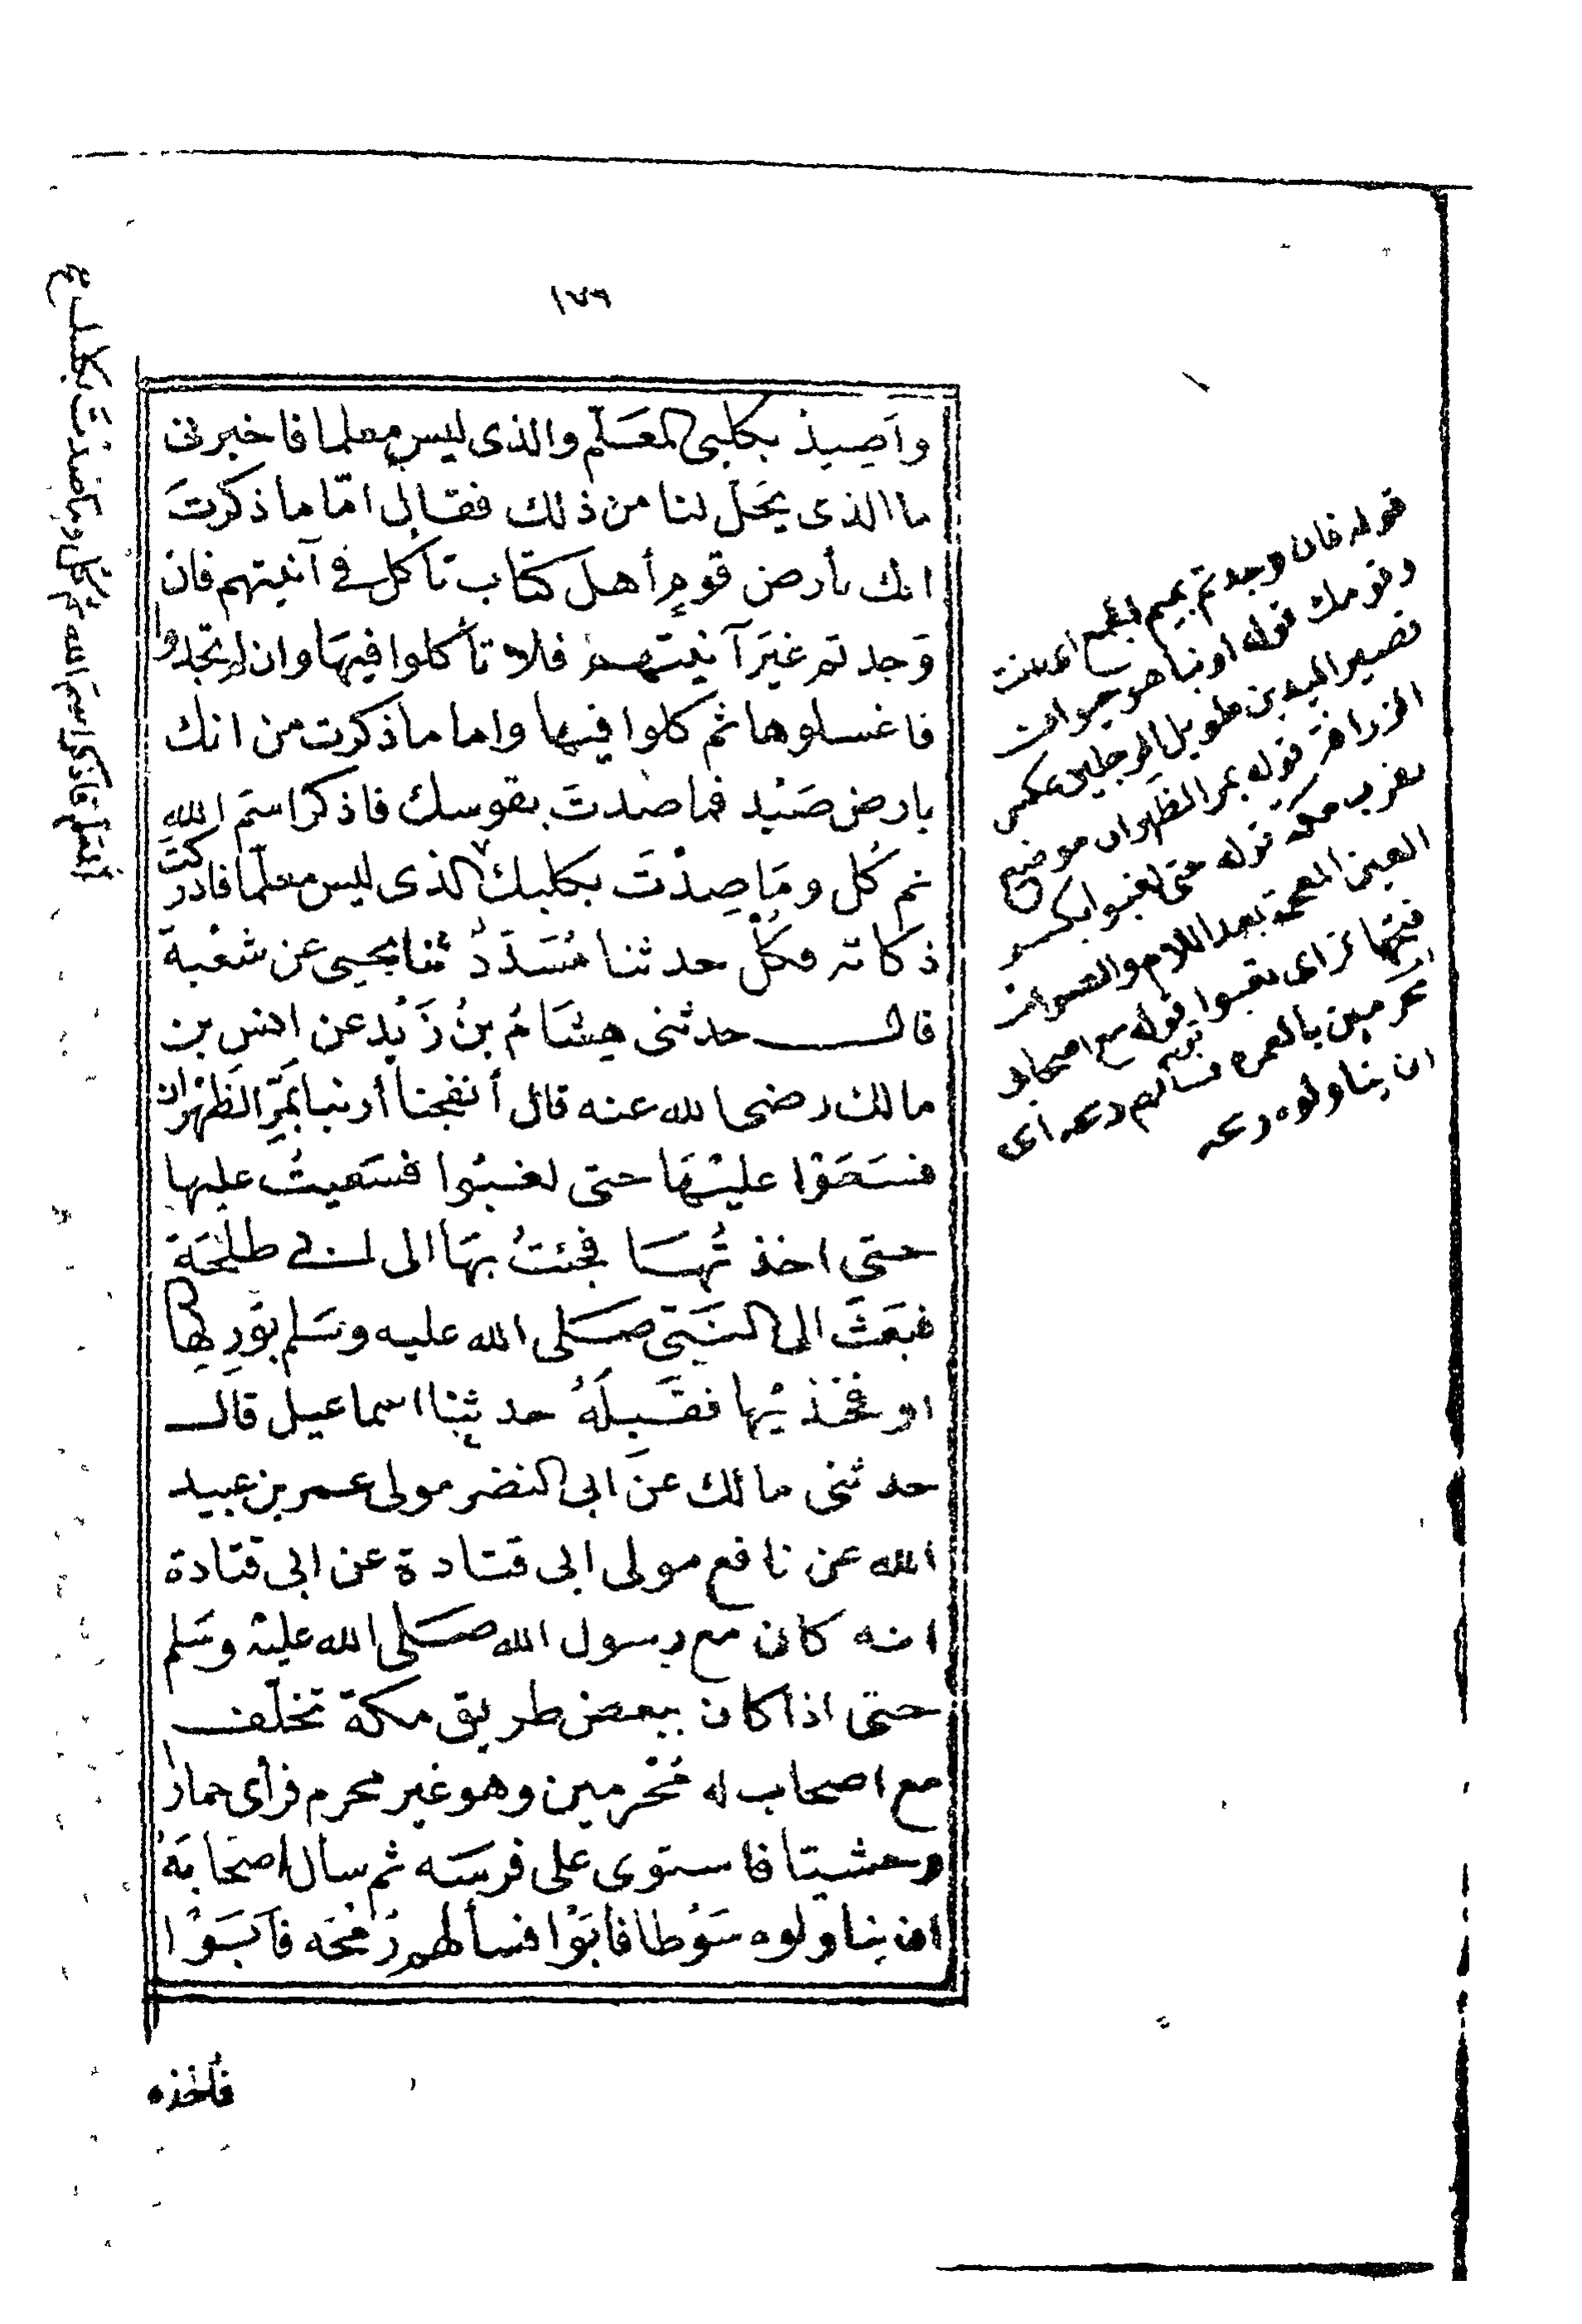 ١٧٩
واَصِيدُ بكلبى المعَلّم والذى ليس معلما فاخبرنى
ما الذى يَحلّ لنا من ذلك فقال امّا ما ذكرتَ
انك بأرض قومٍ أهل كتاب تأكل فى آنيتهم فان
وَجدتم غيَر آنيتهم فلا تأكلوا فيهَا وان لم تجدوا
فاغسلوها ثم كلوا فيها واما ما ذكرت من انك
بارض صَيْد فما صدتَ بقوسك فاذكر اسمَ الله
ثم كُل ومَا صِدْتَ بكلبك الذى ليس معلّما فادركتَ
ذكاته فكُلْ حدثنا مُسَدَّدُ ثنا يحيى عن شعْبة
قال حدثنى هِشَامُ بنُ زَيْد عن انس بن
مالك رضى الله عنه قال أنفجنا أرنبا بمَرِّ الظَهْران
فسَعَوْا عليْهَا حتى لغبُوا فسَعيتُ عليها
حتى اخذتُهَا فجئتُ بهَا الى ابى طلحَة
فبَعَثَ الى النَبىّ صَلى الله عليه وسَلم بوَرِكِها
او فخذيْها فقَبِلَهُ حدثنا اسماعيل قال
حدثنى مالك عن ابى النضر مولى عمر بن عبيد
الله عن نافع مولى ابى قتادة عن ابى قتادة
انه كان مع رسول الله صَلى الله عليْه وسَلم
حتى اذا كان ببعض طريق مكة تخلّف
مع اصحاب له مُحْرمين وهو غير محرم فرأى حمارا
وحشيا فاستوى على فرسَه ثم سأل اصحَابَهُ
ان يناولوه سَوْطا فأبَوْا فسألهم رُمْحَه فأبَوْا
فأخذه
قوله فان وجدتم بميم الجمع اى انت
وقومك قوله ارنبا هو حيوان
قصير اليدين طويل الرجلين عكس
الزرافة قوله بمر الظهران موضع
بقرب مكة قوله حتى لغبوا بكسر
الغين المعجمة بعد اللام والصواب
فتحها اى تعبوا قوله مع اصحاب
محرمين بالعمرة قوله فسألهم رمحه اى
ان يناولوه رمحه
المعلم فاذكر اسمَ الله ثم كل وما صدْتَ بكلبك ع